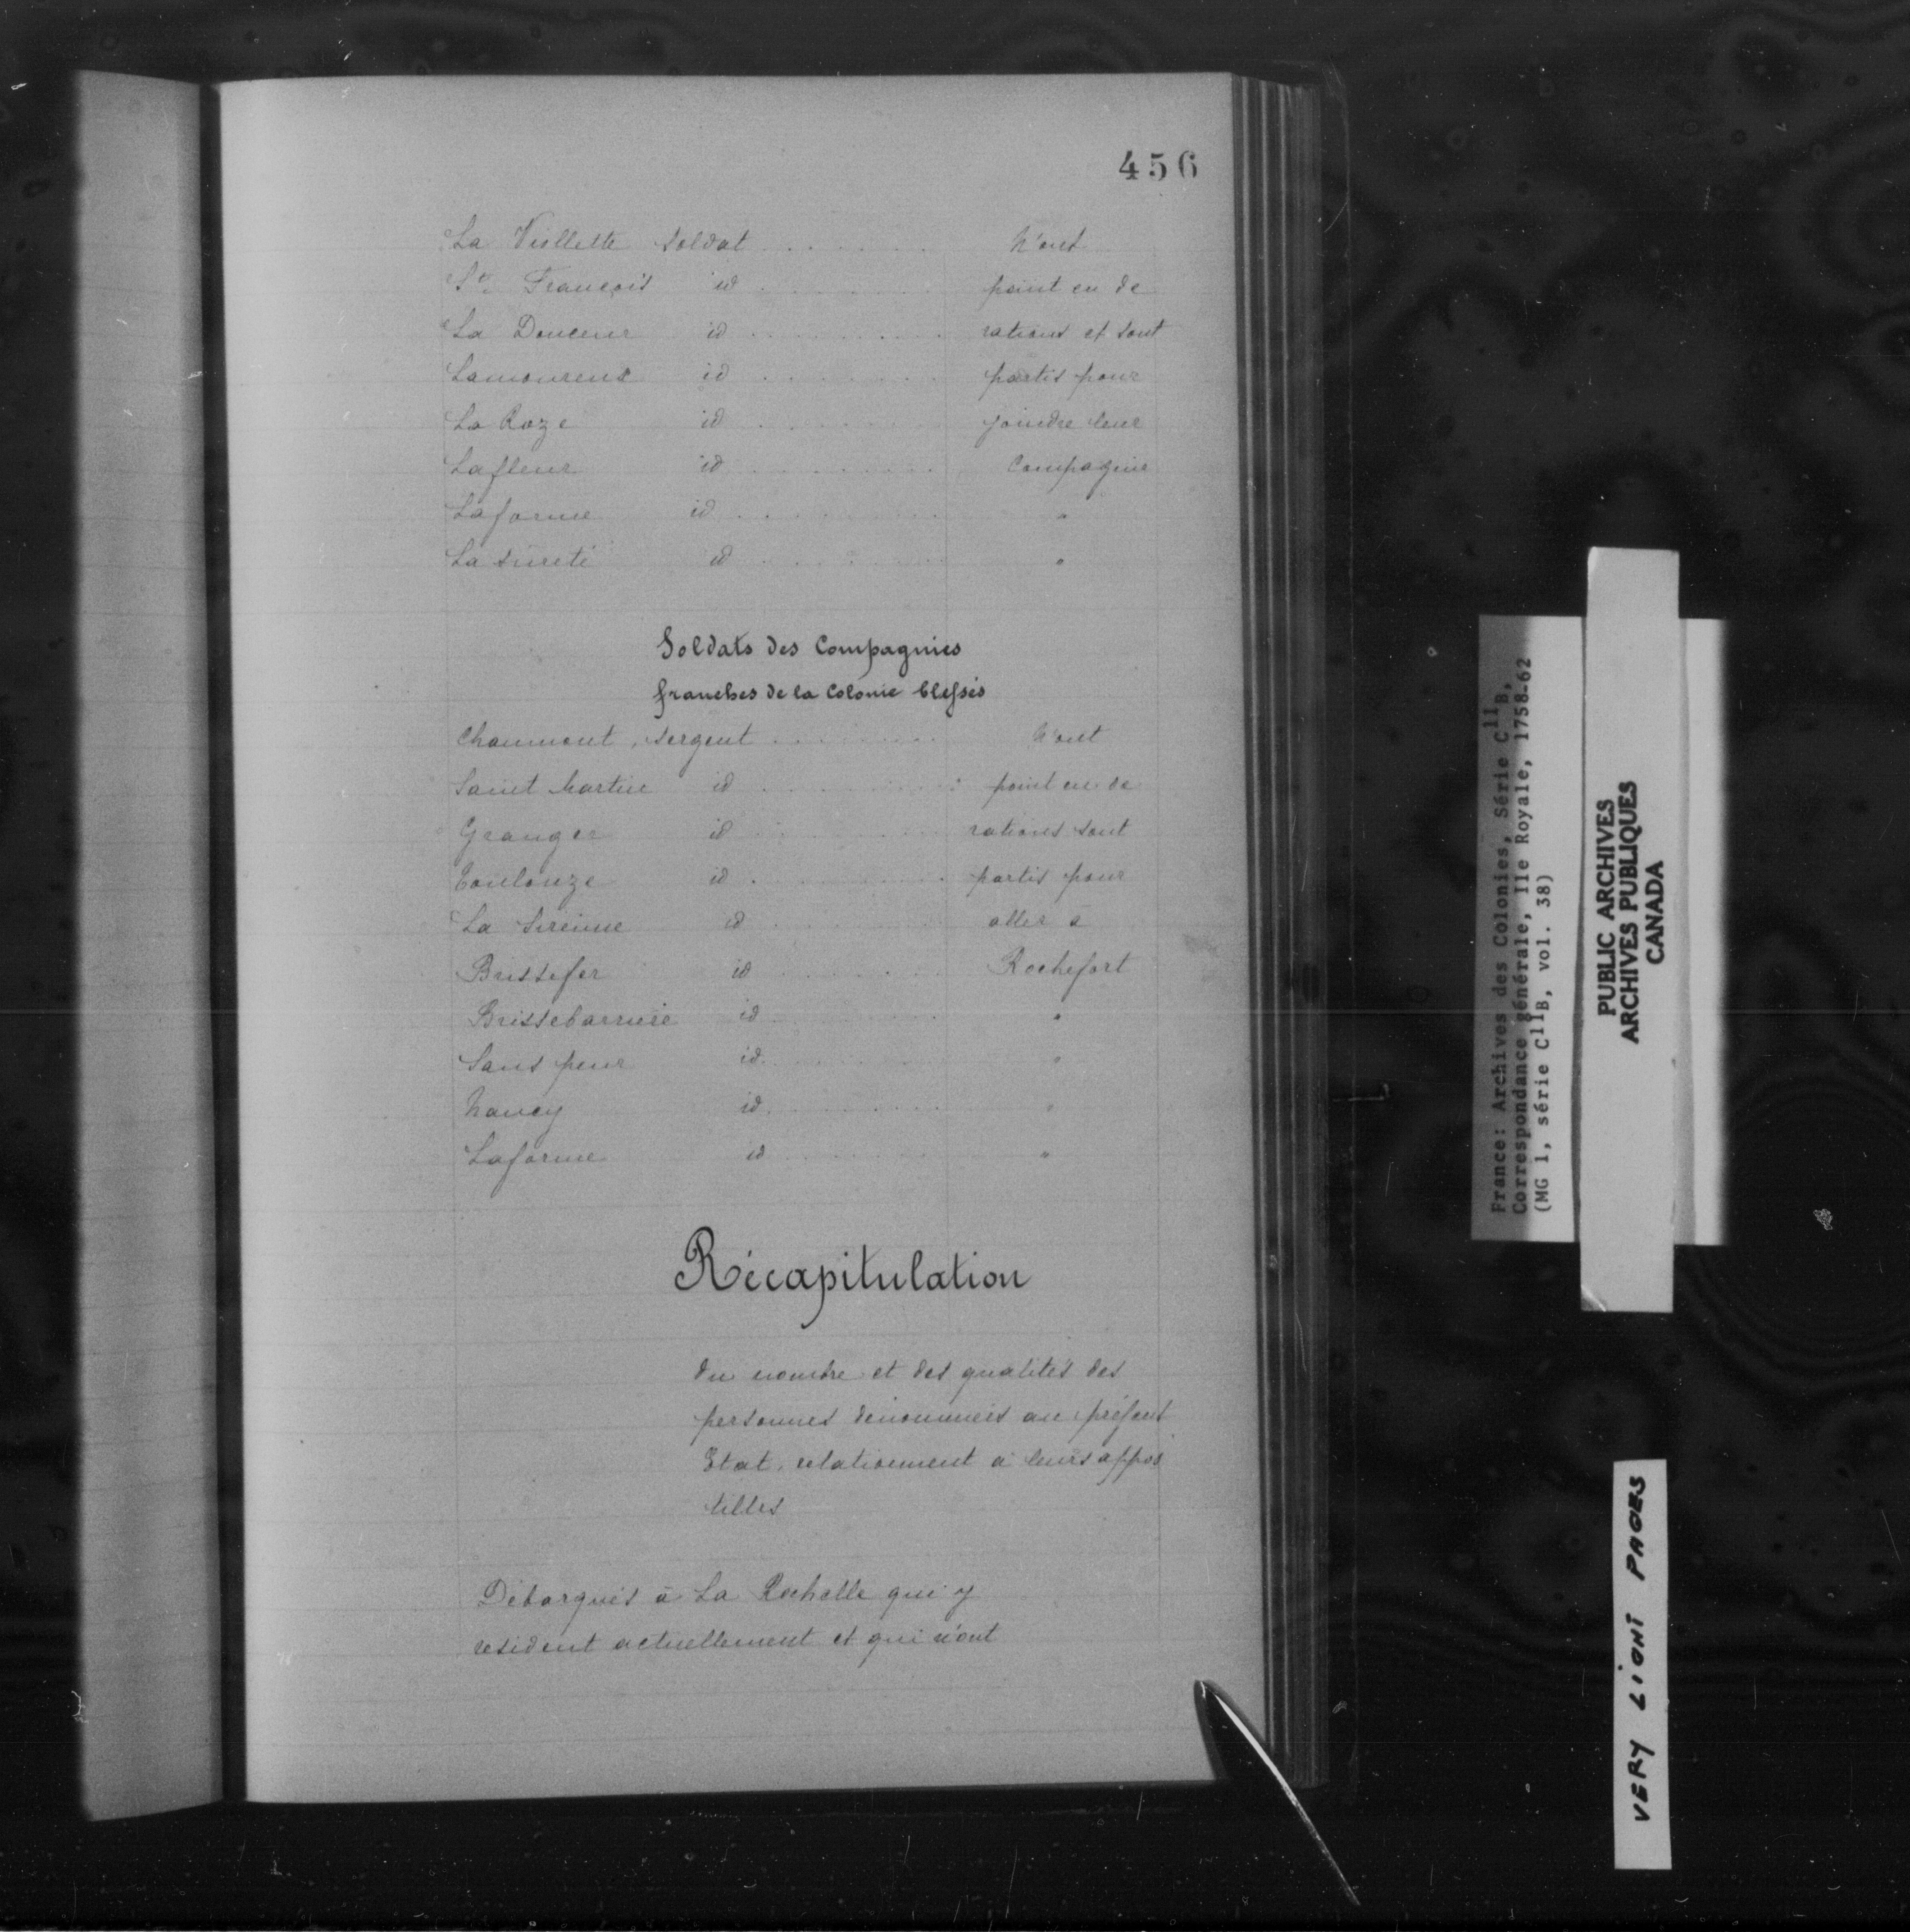 456
La Viellette soldat . . . . . . . N'ont
St François id . . . . . . . point eu de
La Douceur id . . . . . . . rations et sont
Lamoureux id . . . . . . . partis pour
La Roze id . . . . . . . joindre leur
Lafleur id . . . . . . . Compagnie
Laforme id . . . . . . . "
La sûreté id . . . . . . . "
Soldats des Compagnies
franches de la Colonie blessés
Chaumont, sergent . . . . . . . N'ont
Saint Martin id . . . . . . . point eu de
Granger id . . . . . . . rations sont
Toulouze id . . . . . . . partis pour
La Sireinne id . . . . . . . aller à
Brissefer id . . . . . . . Rochefort
Brissebarriere id . . . . . . . "
Sans peur id . . . . . . . "
Nancy id . . . . . . . "
Laforme id . . . . . . . "
Récapitulation
du nombre et des qualités des
personnes dénommées au présent
Etat, relationment à leurs appos
tilles
Débarqués à La Rochelle qui y
resident actuellement et qui n'ont
France: Archives des Colonies, Série C11B,
Correspondance générale, Ile Royale, 1758-62
(MG 1, série C11B, vol. 38)
PUBLIC ARCHIVES
ARCHIVES PUBLIQUES
CANADA
VERY LIGHT PAGES